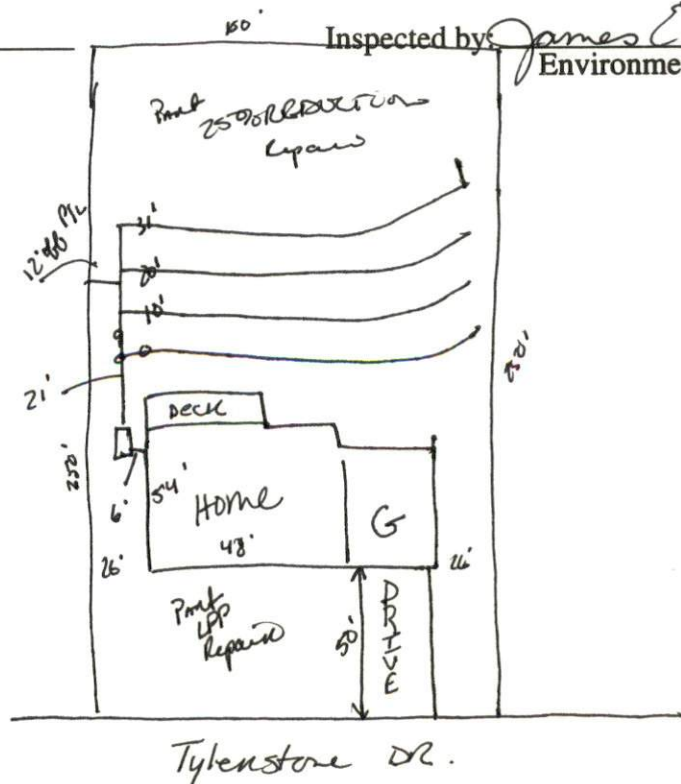 Inspected by: James E
Environme
Part
25% REDUCTION
Repair
12' off P/L
31'
20'
10'
0
21'
DECK
250'
6'
54'
Home
G
48'
26'
Part
LPP
Repair
50'
DRIVE
Tylerstone DR.